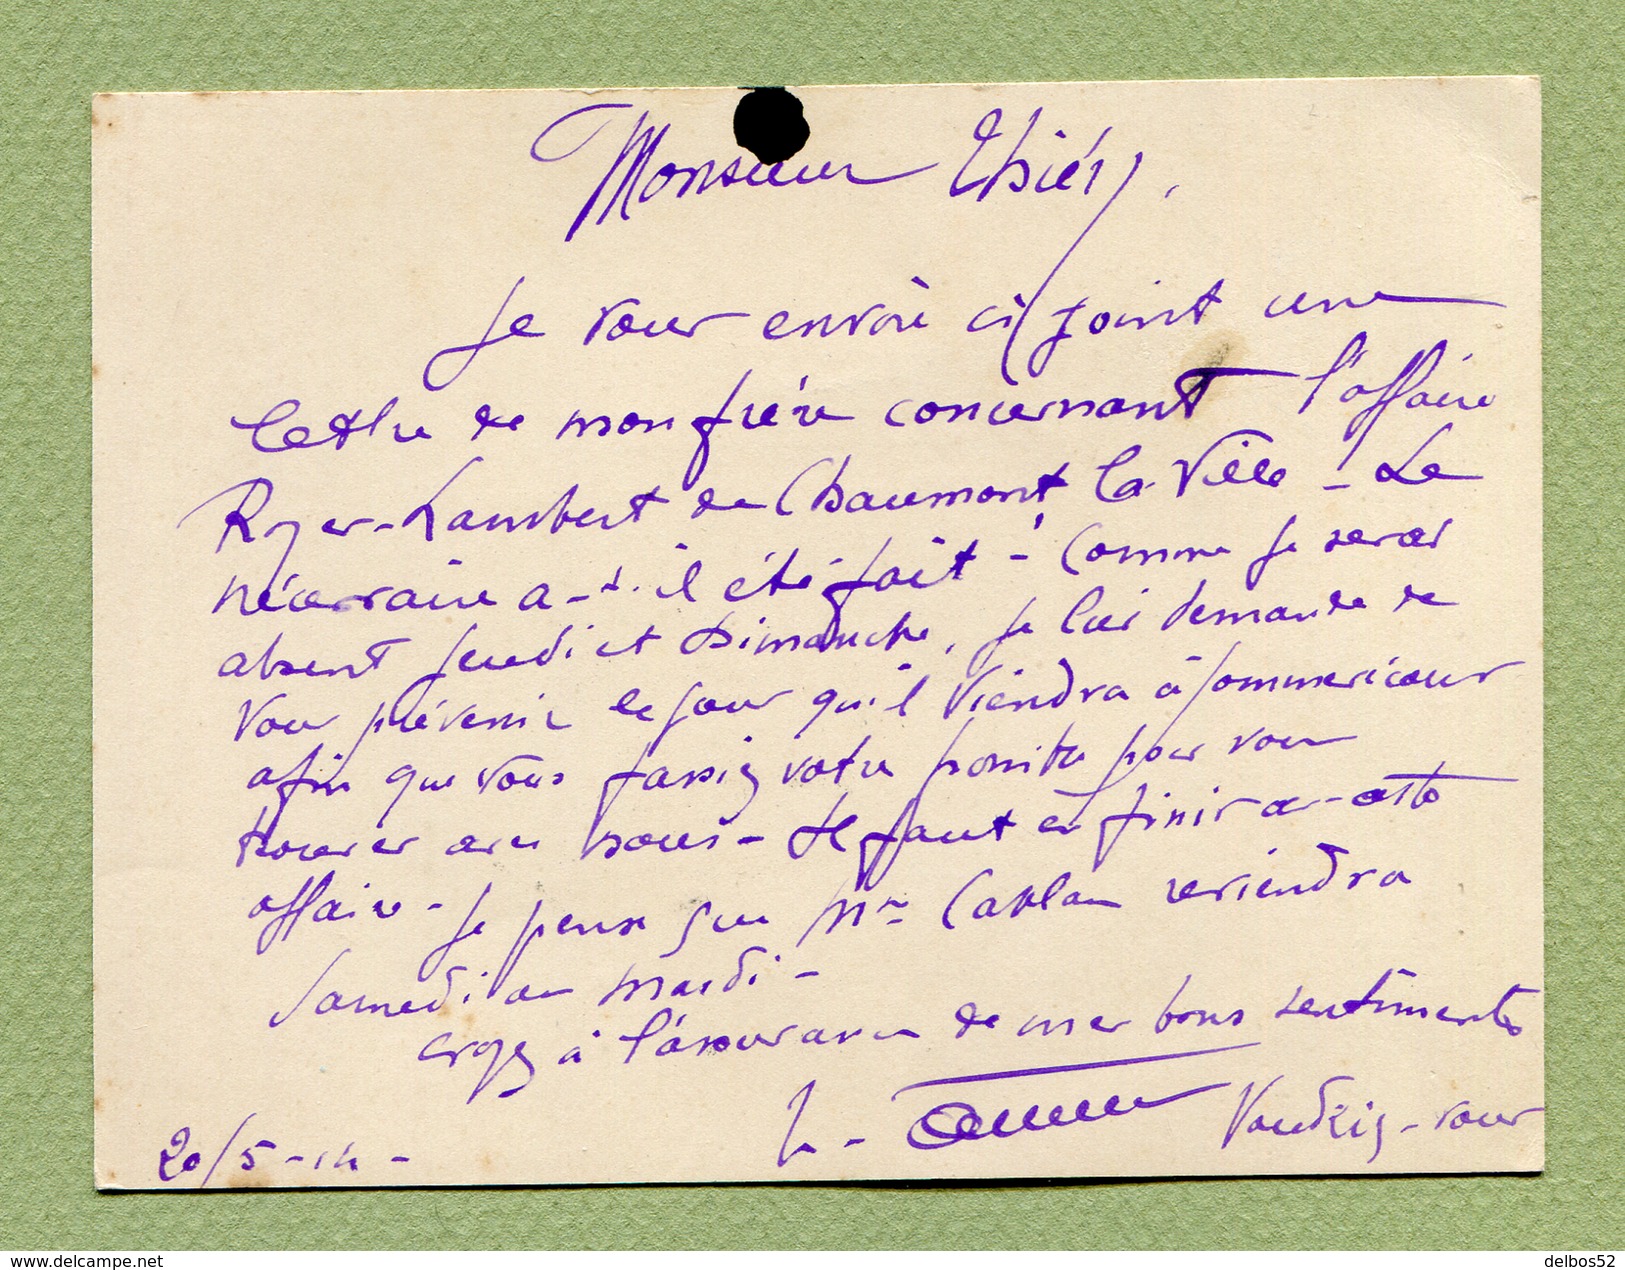 Monsieur Thiéry,
Je vous envoie ci joint une
lettre de mon frère concernant l'affaire
Royer-Lambert de Chaumont la Ville - Le
nécessaire a-t-il été fait - Comme je serai
absent Jeudi et Dimanche, je lui demande de
vous prévenir le jour qu'il viendra à Sommerécourt
afin que vous fassiez votre possible pour vous
trouver avec nous - Il faut en finir avec cette
affaire - Je pense que Mr Caplan reviendra
Samedi ou mardi -
croyez à l'assurance de mes bons sentiments
Veuillez - vous
20/5 - 14 -
delbos52